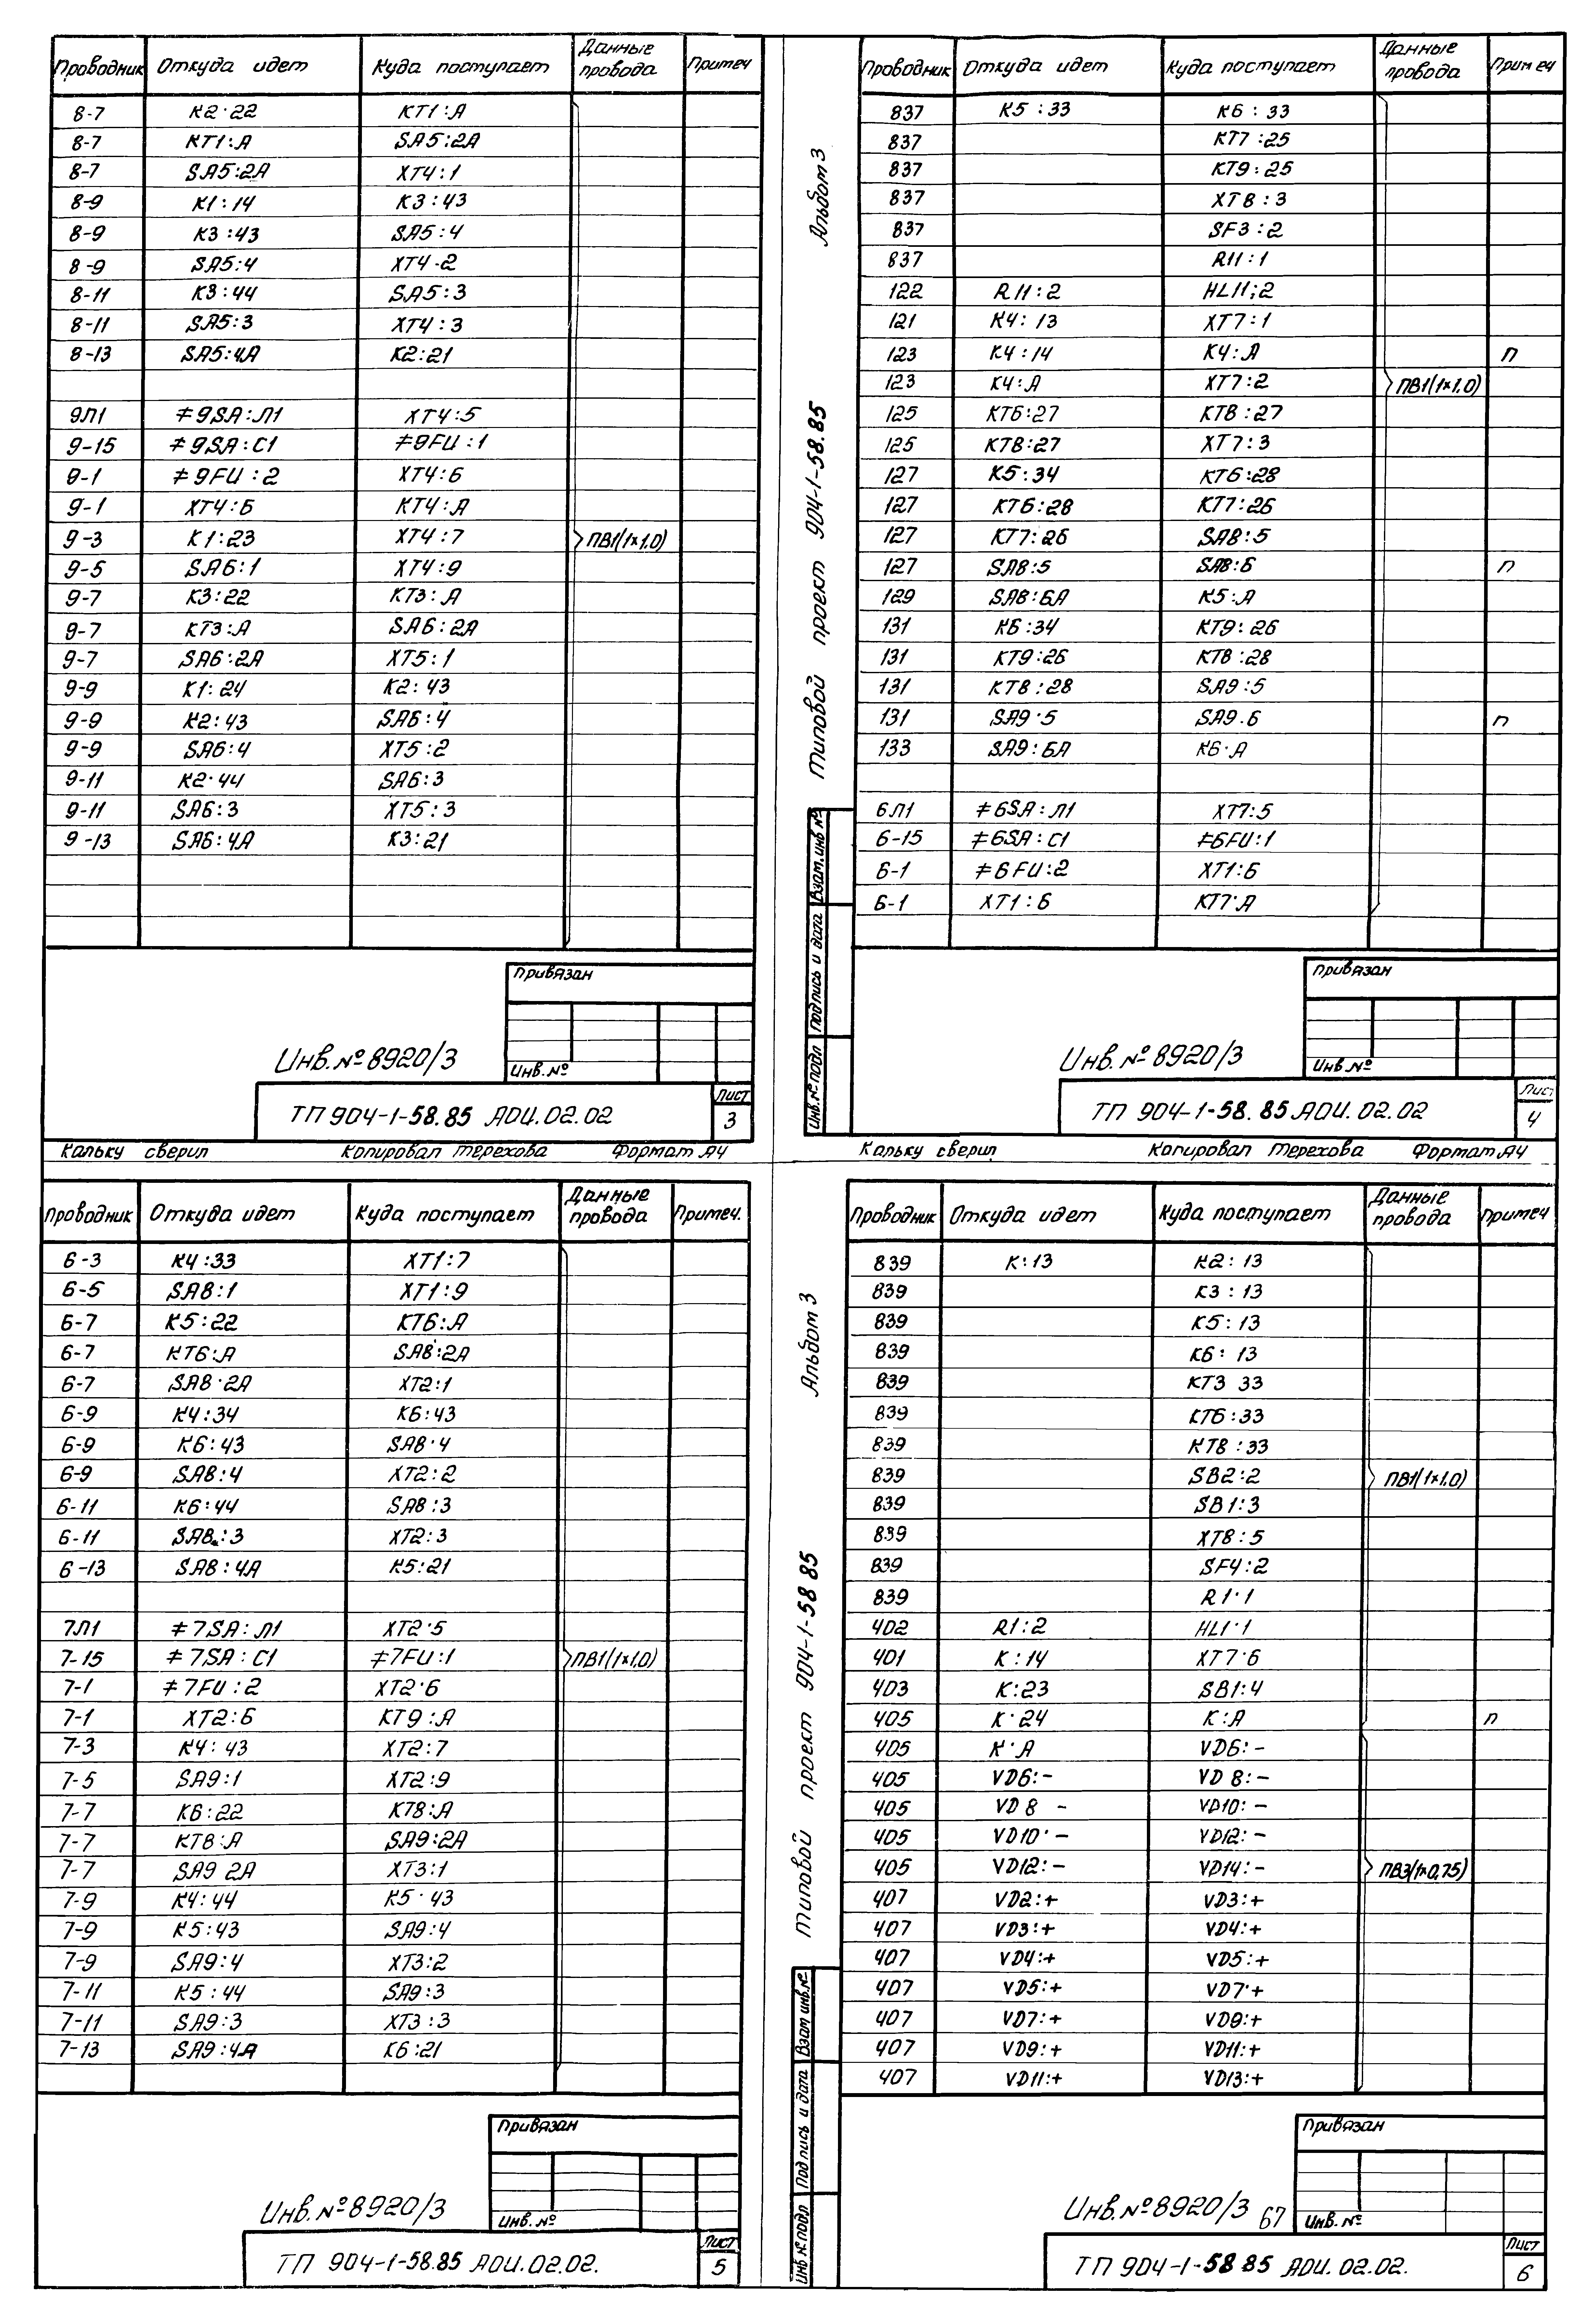 Проводник Откуда идет Куда поступает Данные провода Примеч
8-7 К2·22 КТ1:А
8-7 КТ1:А SA5:2А
8-7 SA5:2А ХТ4:1
8-9 К1:14 К3:43
8-9 К3:43 SA5:4
8-9 SA5:4 ХТ4-2
8-11 К3:44 SA5:3
8-11 SA5:3 ХТ4:3
8-13 SA5:4А К2:21
9Л1 ≠9SA:Л1 ХТ4:5
9-15 ≠9SA:С1 ≠9FU:1
9-1 ≠9FU:2 ХТ4:6
9-1 ХТ4:6 КТ4:А
9-3 К1:23 ХТ4:7 ПВ1(1×1,0)
9-5 SA6:1 ХТ4:9
9-7 К3:22 КТ3:А
9-7 КТ3:А SA6:2А
9-7 SA6:2А ХТ5:1
9-9 К1:24 К2:43
9-9 К2:43 SA6:4
9-9 SA6:4 ХТ5:2
9-11 К2·44 SA6:3
9-11 SA6:3 ХТ5:3
9-13 SA6:4А К3:21
Привязан
Инв.№
Инв.№8920/3
ТП 904-1-58.85 АОИ.02.02
Лист
3
Кальку сверил Копировал Терехова Формат А4
Альбом 3
Типовой проект 904-1-58.85
Взам.инв №
Подпись и дата
Инв.№подл
Проводник Откуда идет Куда поступает Данные провода Примеч
837 К5:33 К6:33
837 КТ7:25
837 КТ9:25
837 ХТ8:3
837 SF3:2
837 R11:1
122 R11:2 HL11;2
121 К4:13 ХТ7:1
123 К4:14 К4:А п
123 К4:А ХТ7:2 ПВ1(1×1,0)
125 КТ6:27 КТ8:27
125 КТ8:27 ХТ7:3
127 К5:34 КТ6:28
127 КТ6:28 КТ7:26
127 КТ7:26 SA8:5
127 SA8:5 SA8:6 п
129 SA8:6А К5:А
131 К6:34 КТ9:26
131 КТ9:26 КТ8:28
131 КТ8:28 SA9:5
131 SA9·5 SA9.6 п
133 SA9:6А К6·А
6Л1 ≠6SA:Л1 ХТ7:5
6-15 ≠6SA:С1 ≠6FU:1
6-1 ≠6FU:2 ХТ1:6
6-1 ХТ1:6 КТ7·А
Привязан
Инв.№
Инв.№8920/3
ТП 904-1-58.85 АОИ.02.02
Лист
4
Кальку сверил Копировал Терехова Формат А4
Проводник Откуда идет Куда поступает Данные провода Примеч.
6-3 К4:33 ХТ1:7
6-5 SA8:1 ХТ1:9
6-7 К5:22 КТ6:А
6-7 КТ6:А SA8:2А
6-7 SA8·2А ХТ2:1
6-9 К4:34 К6:43
6-9 К6:43 SA8·4
6-9 SA8:4 ХТ2:2
6-11 К6:44 SA8:3
6-11 SA8:3 ХТ2:3
6-13 SA8:4А К5:21
7Л1 ≠7SA:Л1 ХТ2·5
7-15 ≠7SA:С1 ≠7FU:1 ПВ1(1×1,0)
7-1 ≠7FU:2 ХТ2·6
7-1 ХТ2:6 КТ9:А
7-3 К4:43 ХТ2:7
7-5 SA9:1 ХТ2:9
7-7 К6:22 КТ8:А
7-7 КТ8:А SA9:2А
7-7 SA9 2А ХТ3:1
7-9 К4:44 К5·43
7-9 К5:43 SA9:4
7-9 SA9:4 ХТ3:2
7-11 К5:44 SA9:3
7-11 SA9:3 ХТ3:3
7-13 SA9:4А К6:21
Привязан
Инв.№
Инв.№8920/3
ТП 904-1-58.85 АОИ.02.02.
Лист
5
Альбом 3
Типовой проект 904-1-58 85
Взам инв.№
Подпись и дата
Инв №подл
Проводник Откуда идет Куда поступает Данные провода Примеч
839 К:13 К2:13
839 К3:13
839 К5:13
839 К6:13
839 КТ3 33
839 КТ6:33
839 КТ8:33
839 SB2:2 ПВ1(1×1,0)
839 SB1:3
839 ХТ8:5
839 SF4:2
839 R1·1
402 R1:2 HL1·1
401 К:14 ХТ7·6
403 К:23 SB1:4
405 К·24 К:А п
405 К·А VD6:-
405 VD6:- VD 8:-
405 VD 8 - VD10:-
405 VD10·- VD12:-
405 VD12:- VD14:- ПВ3(1×0,75)
407 VD2:+ VD3:+
407 VD3:+ VD4:+
407 VD4:+ VD5:+
407 VD5:+ VD7·+
407 VD7:+ VD9:+
407 VD9:+ VD11:+
407 VD11:+ VD13:+
Привязан
Инв.№
Инв.№8920/3 67
ТП 904-1-58 85 АОИ.02.02.
Лист
6